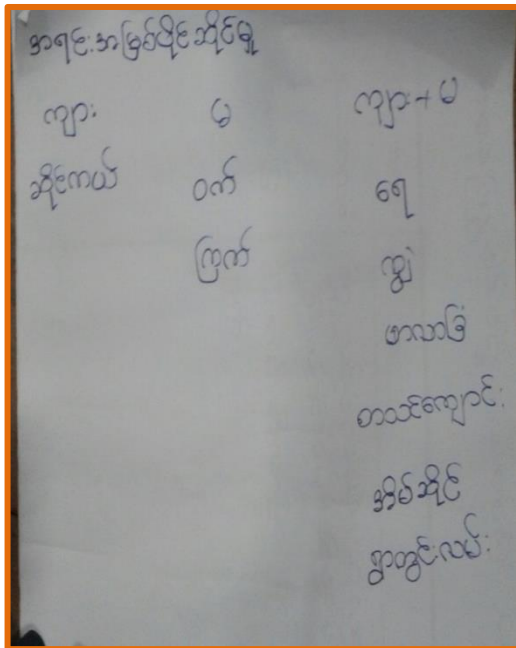 အရင်းအမြစ်ပိုင်ဆိုင်မှု
ကျား မ ကျား+မ
ဆိုင်ကယ် ဝက် ရေ
ကြက် ကျွဲ
ဖာလာခြံ
စာသင်ကျောင်း
အိမ်ဆိုင်
ရွာတွင်းလမ်း